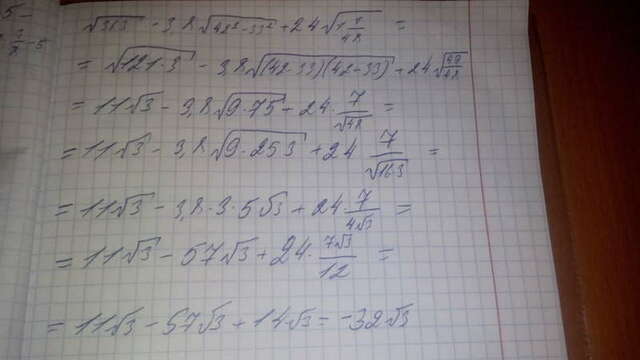 √313 - 3,8√(42² - 33²) + 24√(1 1/48) =
= √(121·3) - 3,8√((42-33)(42-33)) + 24√(49/48)
= 11√3 - 3,8√(9·75) + 24·7/√48 =
= 11√3 - 3,8√(9·253) + 24 7/√(16·3) =
= 11√3 - 3,8·3·5√3 + 24·7/(4√3) =
= 11√3 - 57√3 + 24·7√3/12 =
= 11√3 - 57√3 + 14√3 = -32√3